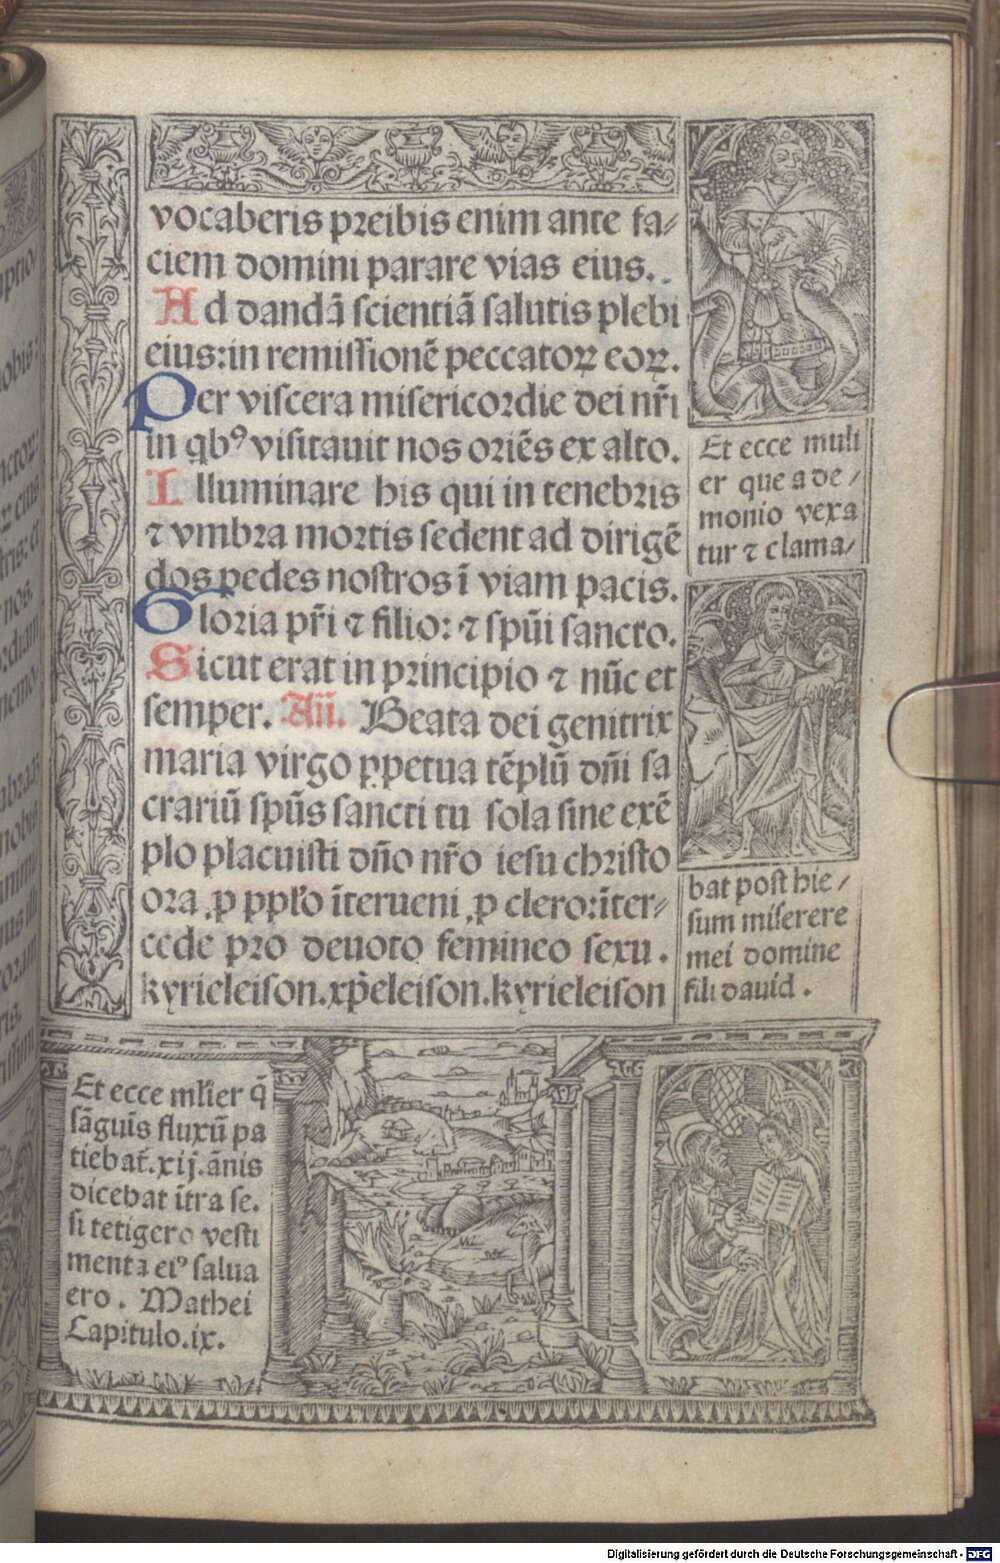 vocaberis preibis enim ante fa⸗
ciem domini parare vias eius.
Ad dandā scientiā salutis plebi
eius: in remissionē peccatoꝝ eoꝝ.
Per viscera misericordie dei nr̄i
in qbꝰ visitauit nos oriēs ex alto.
Illuminare his qui in tenebris
⁊ vmbra mortis sedent ad dirigē
dos pedes nostros ī viam pacis.
Gloria pr̄i ⁊ filio: ⁊ spūi sancto.
Sicut erat in principio ⁊ nūc et
semper. Añ. Beata dei genitrix
maria virgo ꝑpetua tēplū dn̄i sa
crariū spūs sancti tu sola sine exē
plo placuisti dn̄o nr̄o iesu christo
ora ꝓ ppl̄o īterueni ꝓ clero: īter⸗
cede pro deuoto femineo sexu.
kyrieleison. xp̄eleison. kyrieleison
Et ecce muli
er que a de⸗
monio vexa
tur ⁊ clama⸗
bat post hie⸗
sum miserere
mei domine
fili dauid.
Et ecce ml̄ier q̄
sāguis fluxū pa
tiebat̄. xij. ānis
dicebat ītra se.
si tetigero vesti
menta eiꝰ salua
ero. Mathei
Capitulo. ix.
Digitalisierung gefördert durch die Deutsche Forschungsgemeinschaft - DFG